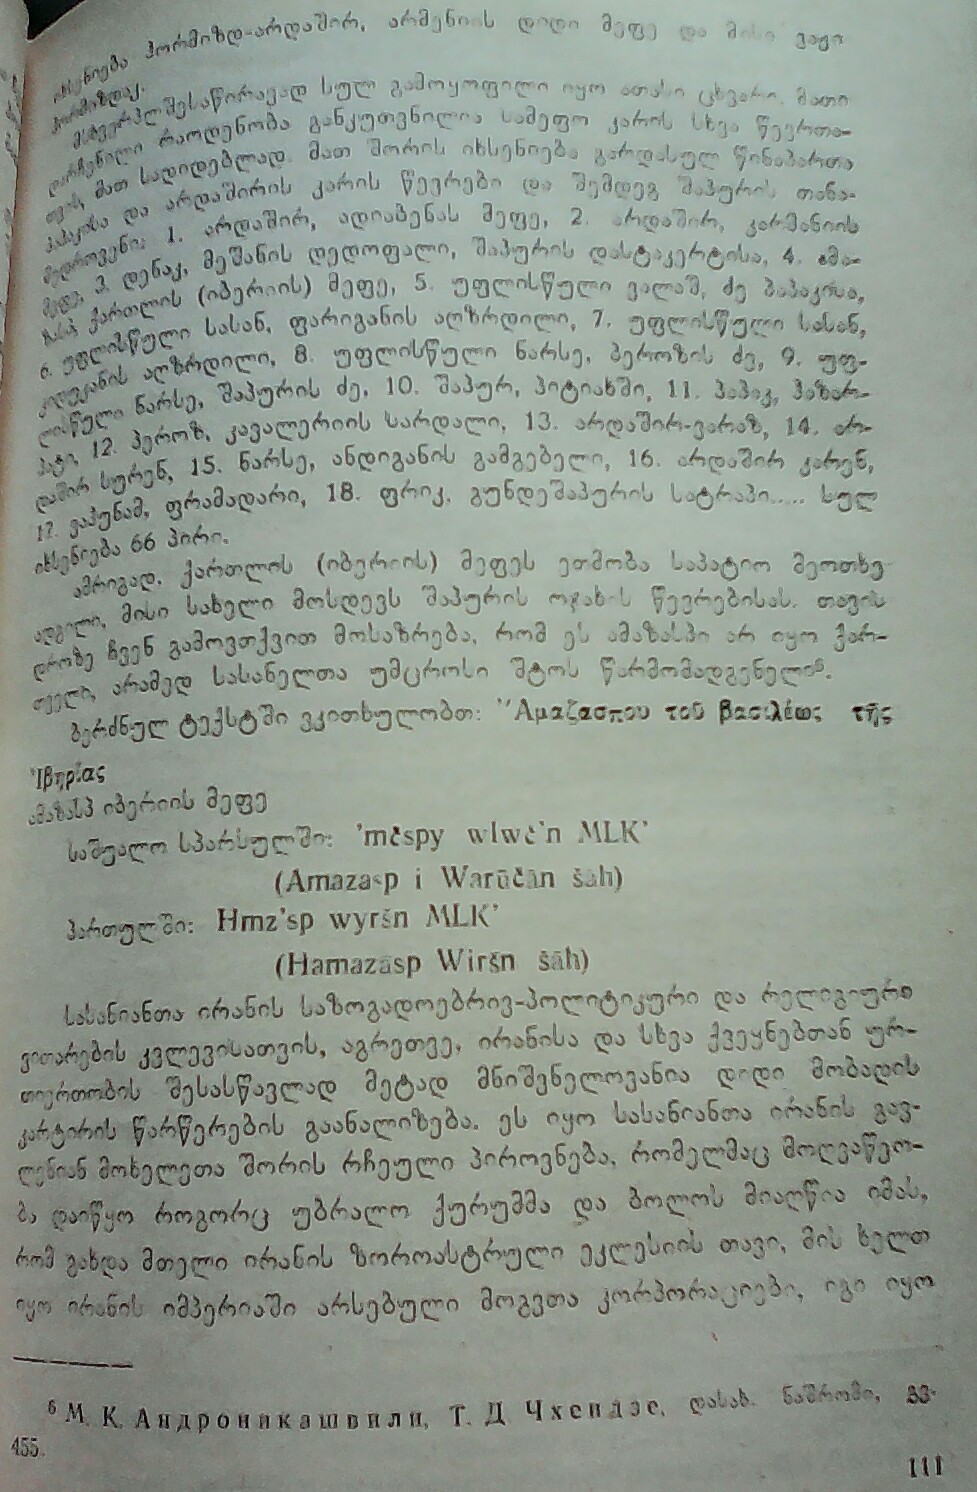 იხსენიება ჰორმიზდ-არდაშირ, არმენიის დიდი მეფე და მისი ვაჟი
ჰორმიზდაკ.
მსხვერპლშესაწირავად სულ გამოყოფილი იყო ათასი ცხვარი. მათი
დარჩენილი რაოდენობა განკუთვნილია სამეფო კარის სხვა წევრთა-
თვის, მათ სადიდებლად. მათ შორის იხსენიება გარდასულ წინაპართა
პაპაკისა და არდაშირის კარის წევრები და შემდეგ შაპურის თანა-
მედროვენი: 1. არდაშირ, ადიაბენას მეფე, 2. არდაშირ, კარმანიის
მეფე, 3. დენაკ, მეშანის დედოფალი, შაპურის დასტაკერტისა, 4. ამა-
ზასპ ქართლის (იბერიის) მეფე, 5. უფლისწული ვალაშ, ძე პაპაკისა,
6. უფლისწული სასან, ფარიგანის აღზრდილი, 7. უფლისწული სასან,
კიდუკანის აღზრდილი, 8. უფლისწული ნარსე, პეროზის ძე, 9. უფ-
ლისწული ნარსე, შაპურის ძე, 10. შაპურ, პიტიახში, 11. პაპაკ, ჰაზარ-
პატი, 12. პეროზ, კავალერიის სარდალი, 13. არდაშირ-ვარაზ, 14. არ-
დაშირ სურენ, 15. ნარსე, ანდიგანის გამგებელი, 16. არდაშირ კარენ,
17. ვაჰუნამ, ფრამადარი, 18. ფრიკ, გუნდეშაპურის სატრაპი..... სულ
იხსენიება 66 პირი.
ამრიგად, ქართლის (იბერიის) მეფეს ეთმობა საპატიო მეოთხე
ადგილი, მისი სახელი მოსდევს შაპურის ოჯახის წევრებისას. თავის
დროზე ჩვენ გამოვთქვით მოსაზრება, რომ ეს ამაზასპი არ იყო ქარ-
თველი, არამედ სასანელთა უმცროსი შტოს წარმომადგენელი⁶.
ბერძნულ ტექსტში ვკითხულობთ: ''Αμαζασπου τοῦ βασιλέως τῆς
Ἰβηρίας
ამაზასპ იბერიის მეფე
საშუალო სპარსულში: 'mčspy wlwč'n MLK'
(Amazasp i Warūčān šāh)
პართულში: Hmz'sp wyršn MLK'
(Hamazāsp Wiršn šāh)
სასანიანთა ირანის საზოგადოებრივ-პოლიტიკური და რელიგიური
ვითარების კვლევისათვის, აგრეთვე, ირანისა და სხვა ქვეყნებთან ურ-
თიერთობის შესასწავლად მეტად მნიშვნელოვანია დიდი მობადის
კარტირის წარწერების გაანალიზება. ეს იყო სასანიანთა ირანის გავ-
ლენიან მოხელეთა შორის რჩეული პიროვნება, რომელმაც მოღვაწეო-
ბა დაიწყო როგორც უბრალო ქურუმმა და ბოლოს მიაღწია იმას,
რომ გახდა მთელი ირანის ზოროასტრული ეკლესიის თავი, მის ხელთ
იყო ირანის იმპერიაში არსებული მოგვთა კორპორაციები, იგი იყო
⁶ М. К. Андроникашвили, Т. Д. Чхеидзе, დასახ. ნაშრომი, გვ.
455.
111